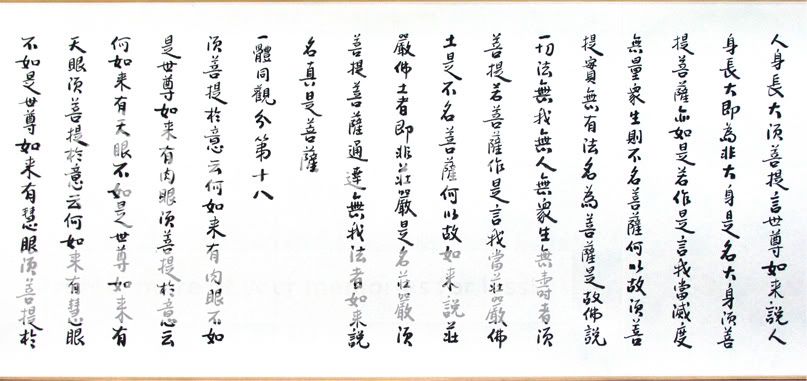 人身長大須菩提言世尊如来說人
身長大即為非大身是名大身須菩
提菩薩亦如是若作是言我當滅度
無量眾生則不名菩薩何以故須菩
提實無有法名為菩薩是故佛說
一切法無我無人無眾生無壽者須
菩提若菩薩作是言我當莊嚴佛
土是不名菩薩何以故如来說莊
嚴佛土者即非莊嚴是名莊嚴須
菩提菩薩通達無我法者如来說
名真是菩薩
一體同觀分第十八
須菩提於意云何如来有肉眼不如
是世尊如来有肉眼須菩提於意云
何如来有天眼不如是世尊如来有
天眼須菩提於意云何如来有慧眼
不如是世尊如来有慧眼須菩提於
of your memories for less!